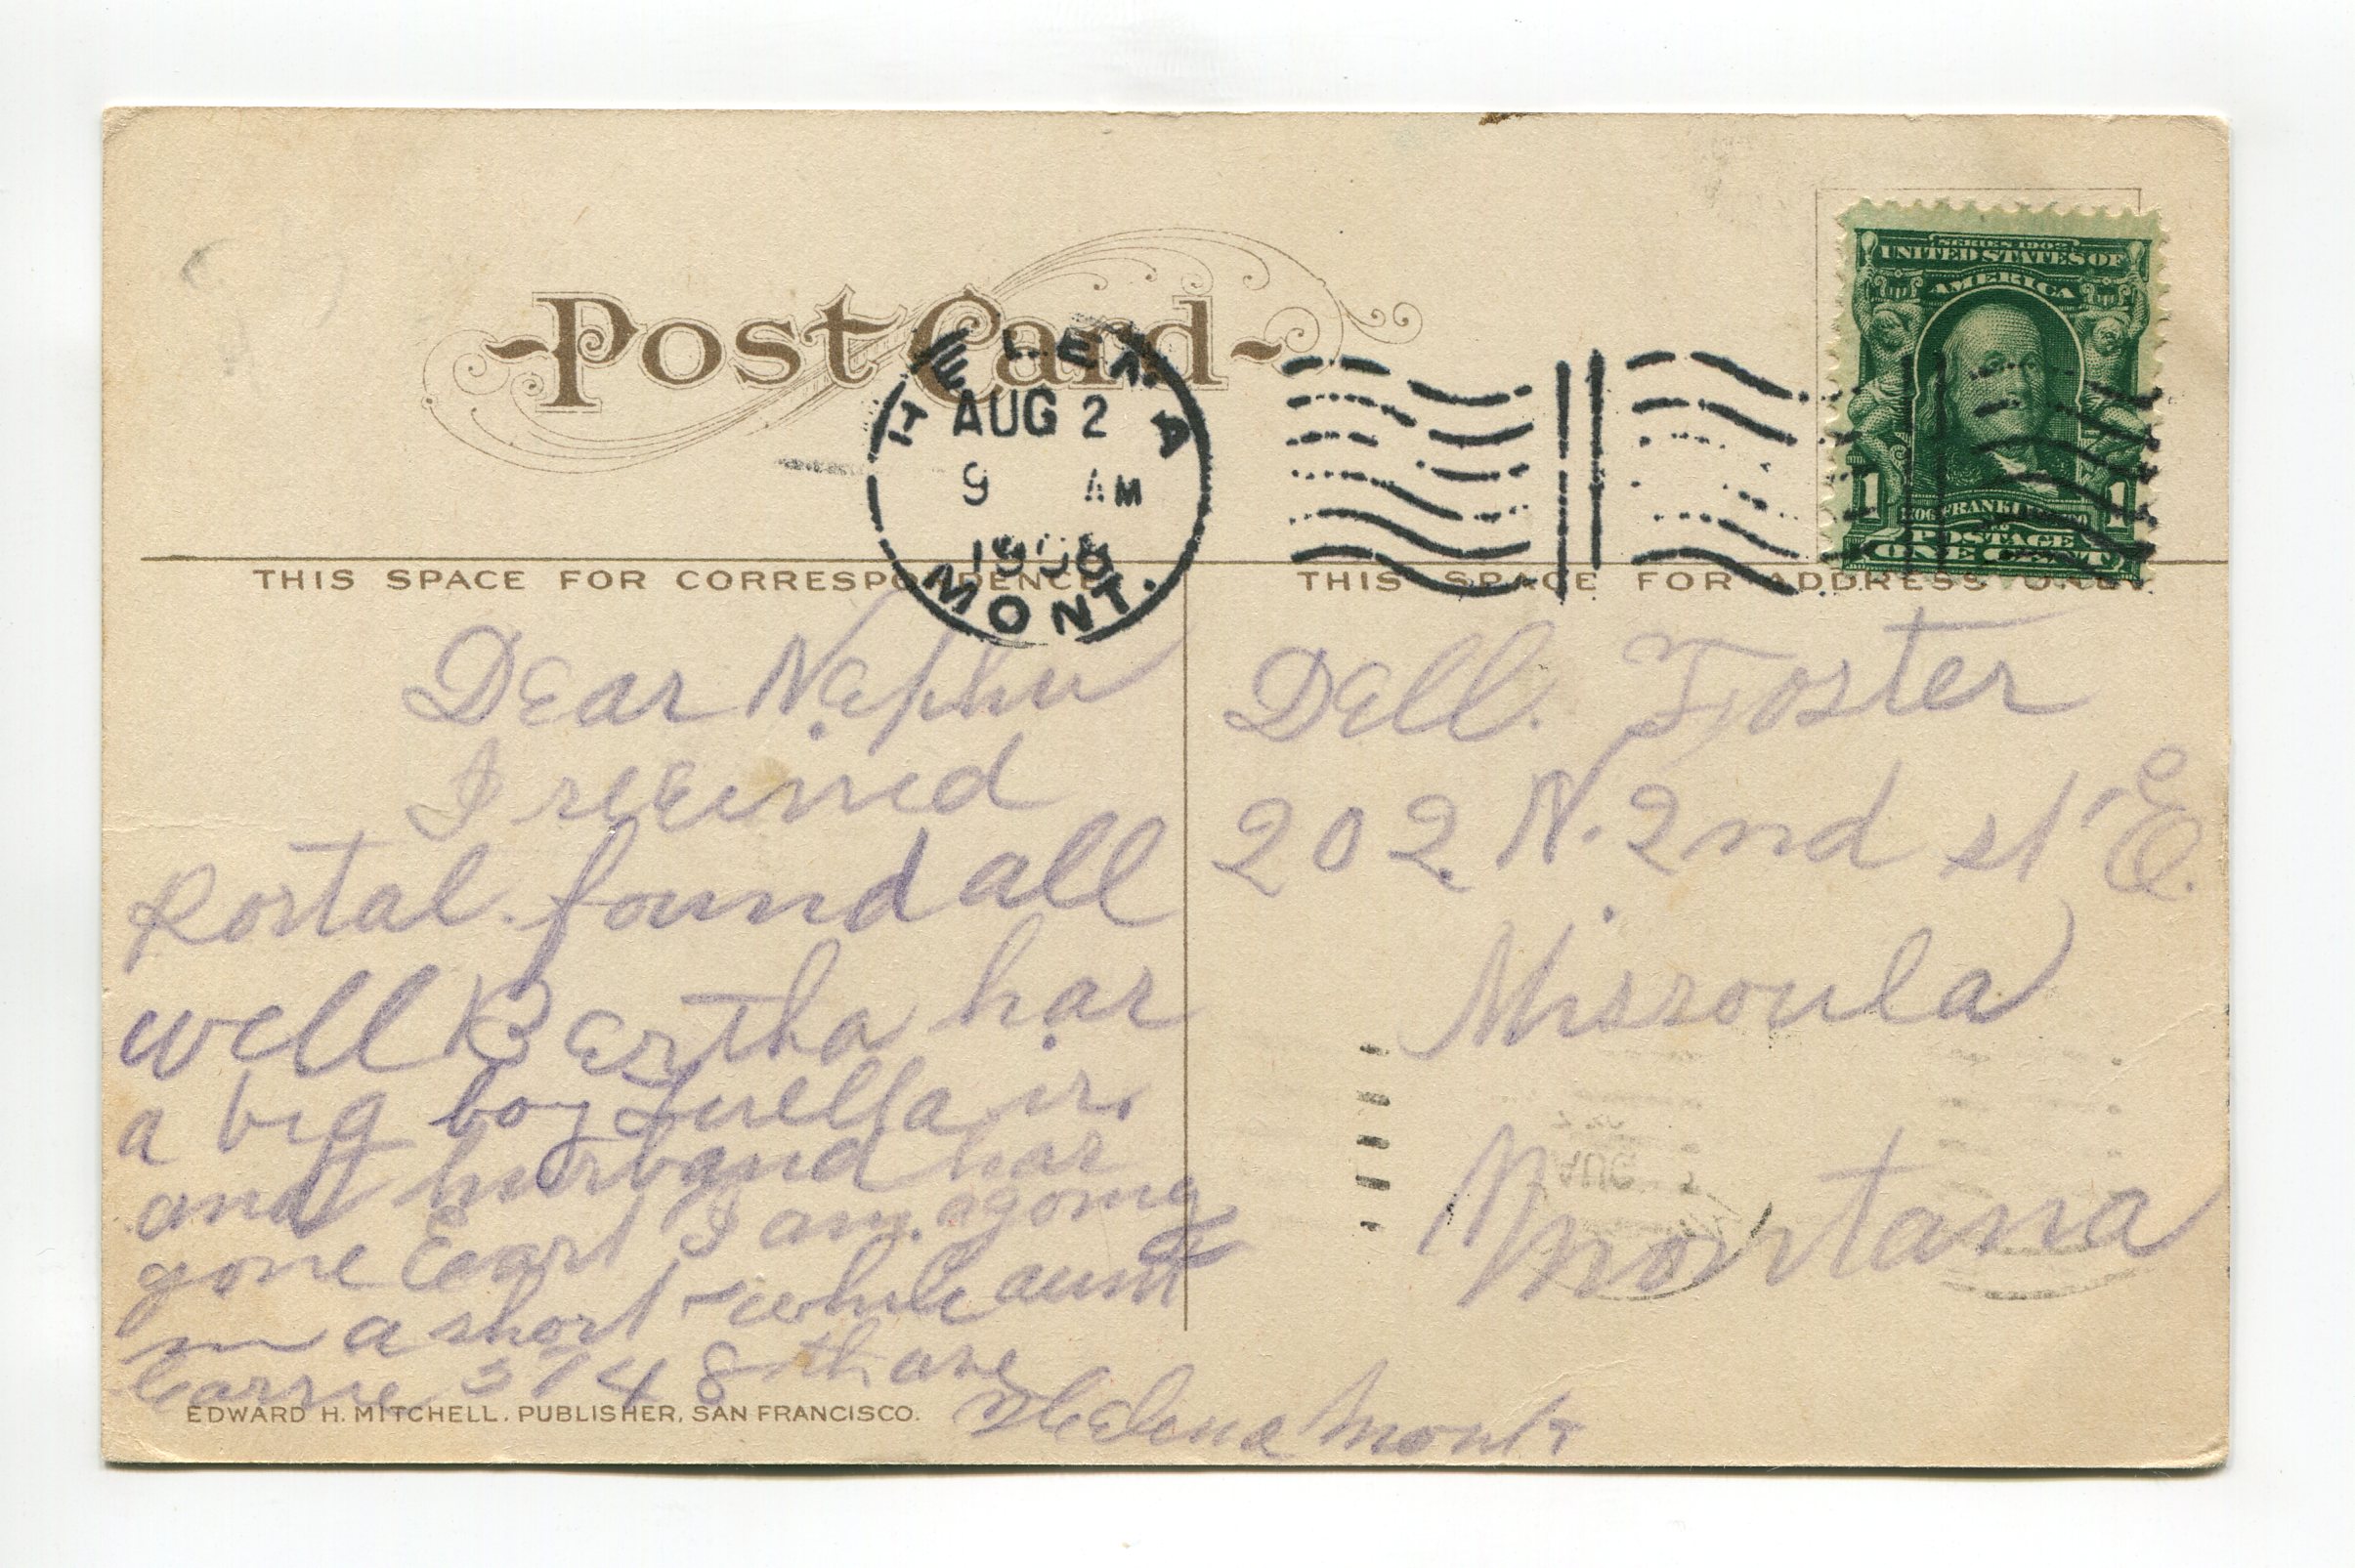 Post Card
HELENA
AUG 2
9 AM
1908
MONT.
SERIES 1902
UNITED STATES OF
AMERICA
1 FRANKLIN 1
POSTAGE
ONE CENT
THIS SPACE FOR CORRESPONDENCE
THIS SPACE FOR ADDRESS ONLY.
Dear Nephu
I received
Postal. found all
well Bertha has
a big boy Luella is
and husband has
gone East I am agoing
in a short while aunt
Carrie 374 8th ave
Helena Mont
Dell. Foster
202 N. 2nd st E.
Missoula
Montana
AUG 2
EDWARD H. MITCHELL, PUBLISHER, SAN FRANCISCO.